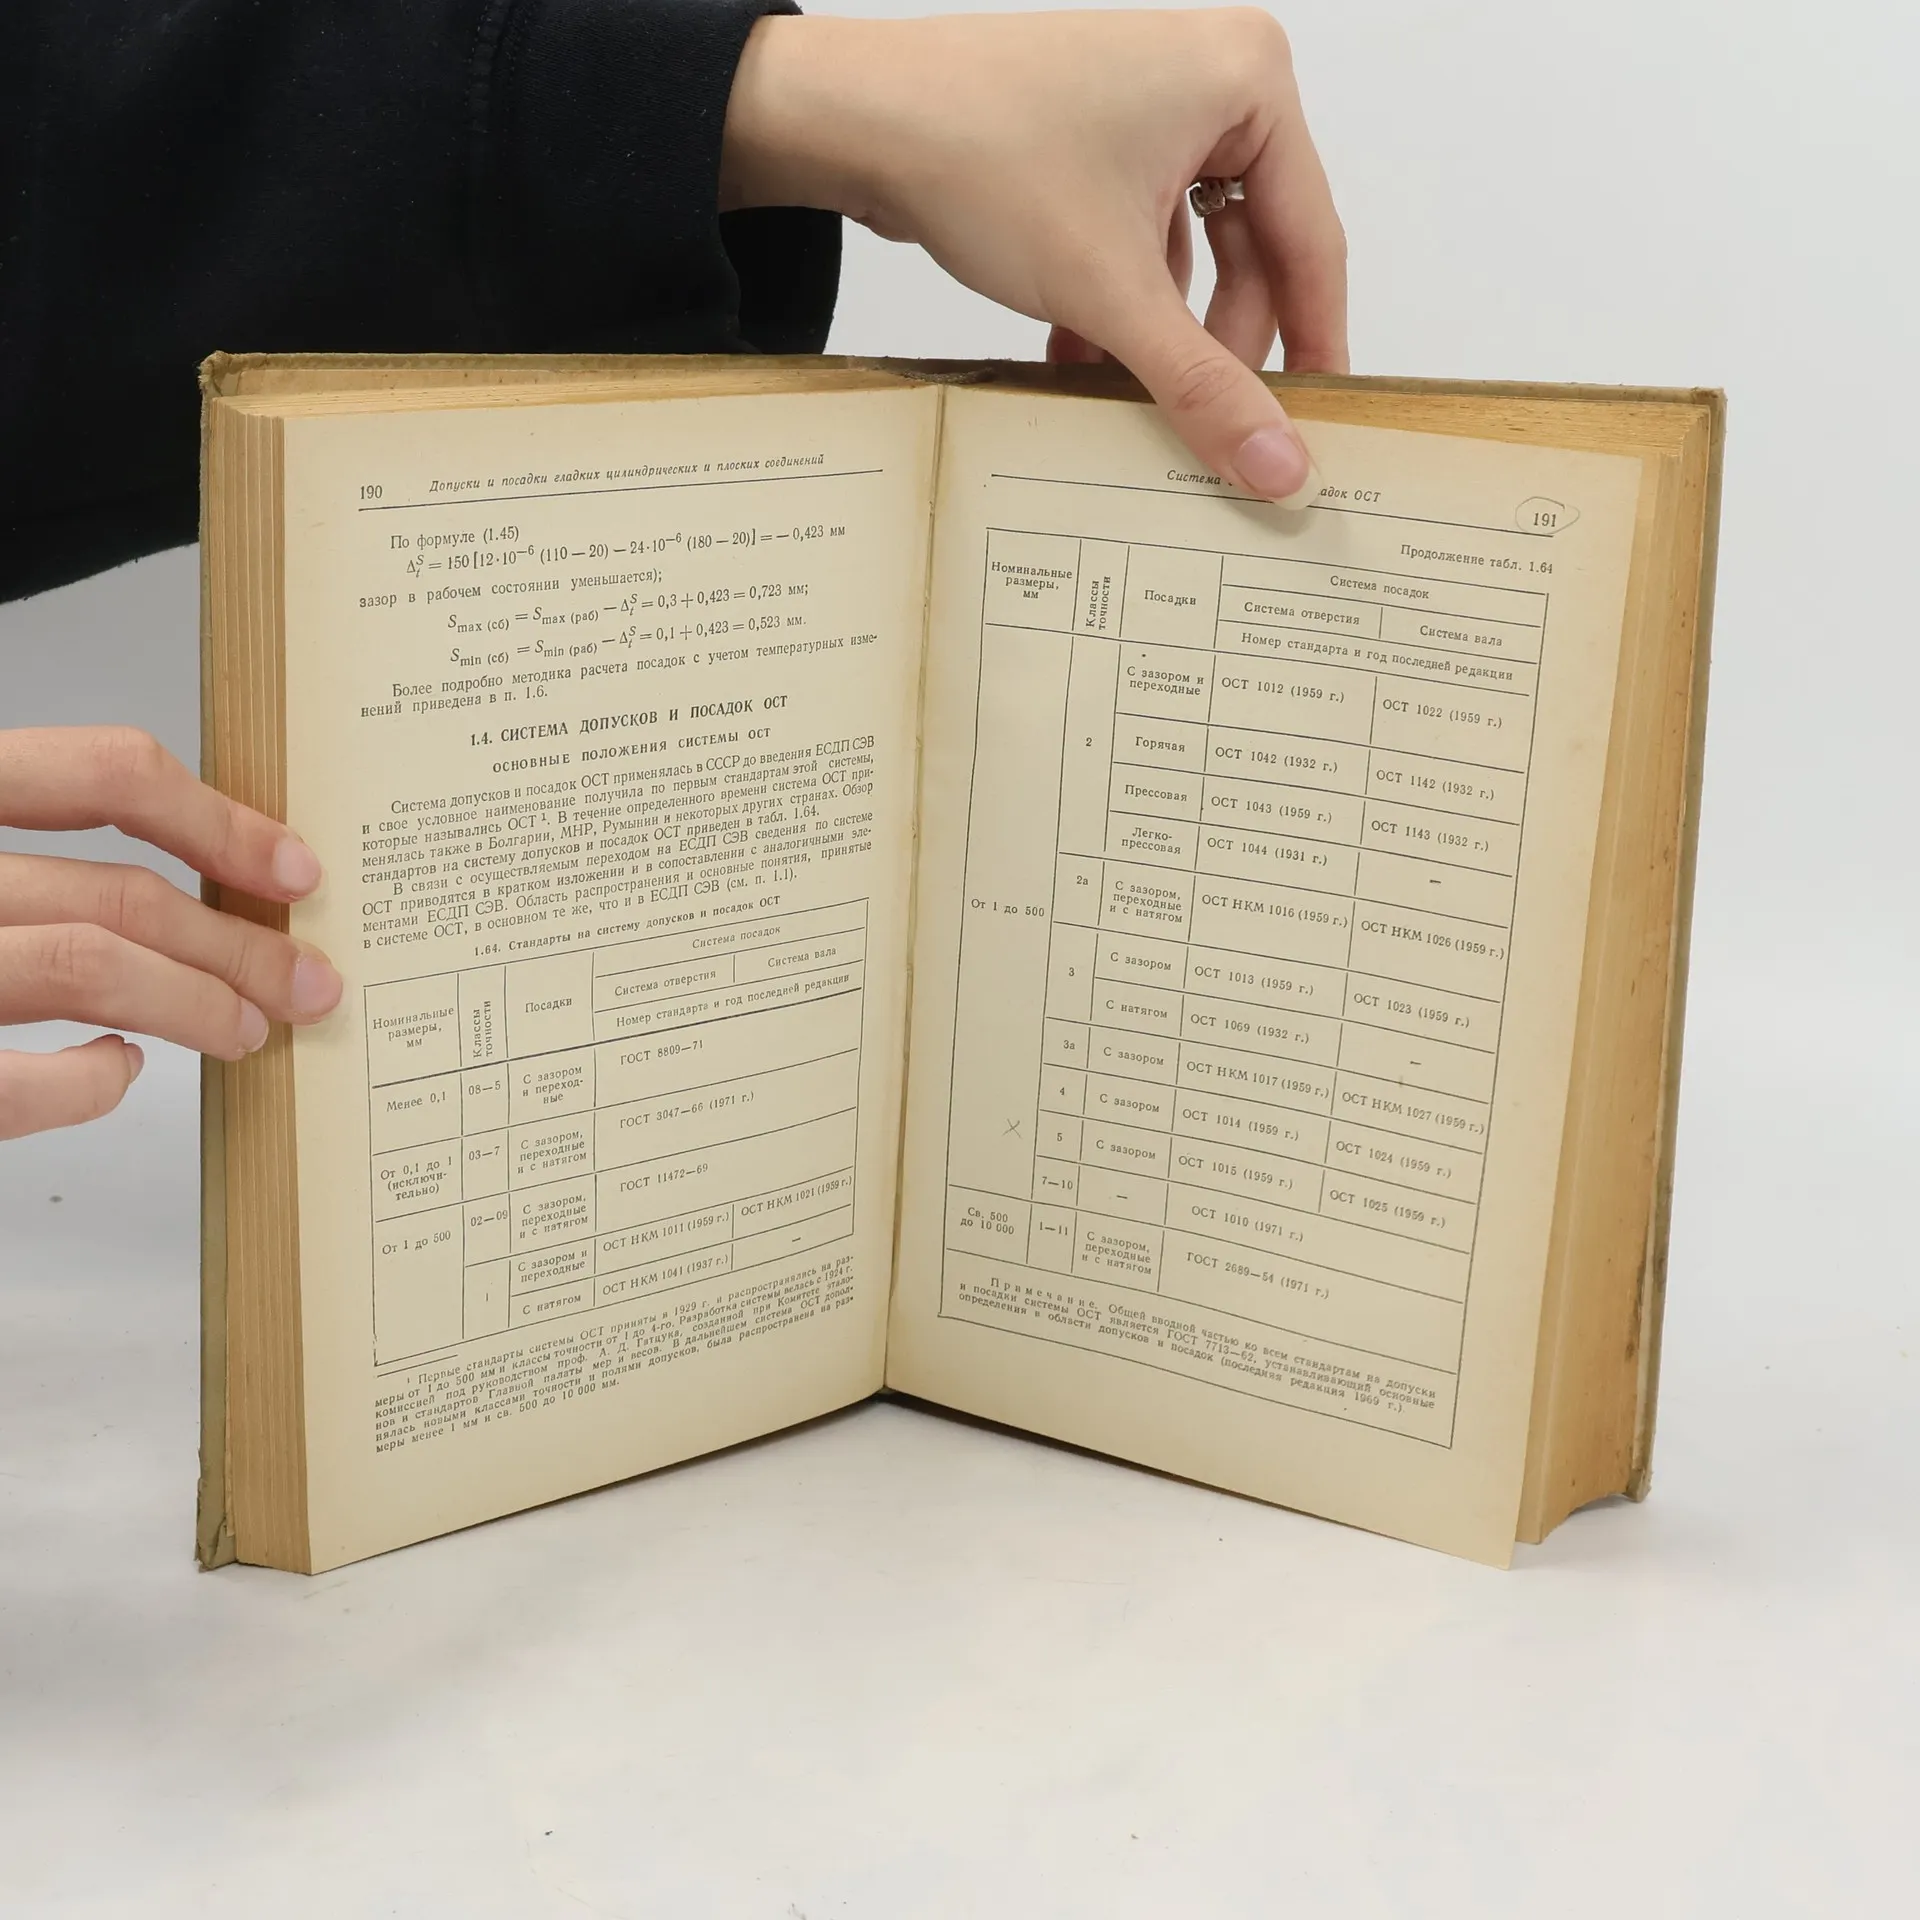 190 Допуски и посадки гладких цилиндрических и плоских соединений
По формуле (1.45)
Δₜˢ = 150 [12·10⁻⁶ (110 — 20) — 24·10⁻⁶ (180 — 20)] = — 0,423 мм
зазор в рабочем состоянии уменьшается);
Smax (сб) = Smax (раб) — Δₜˢ = 0,3 + 0,423 = 0,723 мм;
Smin (сб) = Smin (раб) — Δₜˢ = 0,1 + 0,423 = 0,523 мм.
Более подробно методика расчета посадок с учетом температурных изме-
нений приведена в п. 1.6.
1.4. СИСТЕМА ДОПУСКОВ И ПОСАДОК ОСТ
ОСНОВНЫЕ ПОЛОЖЕНИЯ СИСТЕМЫ ОСТ
Система допусков и посадок ОСТ применялась в СССР до введения ЕСДП СЭВ
и свое условное наименование получила по первым стандартам этой системы,
которые назывались ОСТ ¹. В течение определенного времени система ОСТ при-
менялась также в Болгарии, МНР, Румынии и некоторых других странах. Обзор
стандартов на систему допусков и посадок ОСТ приведен в табл. 1.64.
В связи с осуществляемым переходом на ЕСДП СЭВ сведения по системе
ОСТ приводятся в кратком изложении и в сопоставлении с аналогичными эле-
ментами ЕСДП СЭВ. Область распространения и основные понятия, принятые
в системе ОСТ, в основном те же, что и в ЕСДП СЭВ (см. п. 1.1).
1.64. Стандарты на систему допусков и посадок ОСТ
Номинальные
размеры,
мм
Классы
точности
Посадки
Система посадок
Система отверстия
Система вала
Номер стандарта и год последней редакции
Менее 0,1
08—5
С зазором
и переход-
ные
ГОСТ 8809—71
От 0,1 до 1
(исключи-
тельно)
03—7
С зазором,
переходные
и с натягом
ГОСТ 3047—66 (1971 г.)
От 1 до 500
02—09
С зазором,
переходные
и с натягом
ГОСТ 11472—69
1
С зазором и
переходные
ОСТ НКМ 1011 (1959 г.)
ОСТ НКМ 1021 (1959 г.)
С натягом
ОСТ НКМ 1041 (1937 г.)
—
¹ Первые стандарты системы ОСТ приняты в 1929 г. и распространялись на раз-
меры от 1 до 500 мм и классы точности от 1 до 4-го. Разработка системы велась с 1924 г.
комиссией под руководством проф. А. Д. Гатцука, созданной при Комитете этало-
нов и стандартов Главной палаты мер и весов. В дальнейшем система ОСТ допол-
нялась новыми классами точности и полями допусков, была распространена на раз-
меры менее 1 мм и св. 500 до 10 000 мм.
Система адок ОСТ
191
Продолжение табл. 1.64
Номинальные
размеры,
мм
Классы
точности
Посадки
Система посадок
Система отверстия
Система вала
Номер стандарта и год последней редакции
От 1 до 500
2
С зазором и
переходные
ОСТ 1012 (1959 г.)
ОСТ 1022 (1959 г.)
Горячая
ОСТ 1042 (1932 г.)
ОСТ 1142 (1932 г.)
Прессовая
ОСТ 1043 (1959 г.)
ОСТ 1143 (1932 г.)
Легко-
прессовая
ОСТ 1044 (1931 г.)
—
2а
С зазором,
переходные
и с натягом
ОСТ НКМ 1016 (1959 г.)
ОСТ НКМ 1026 (1959 г.)
3
С зазором
ОСТ 1013 (1959 г.)
ОСТ 1023 (1959 г.)
С натягом
ОСТ 1069 (1932 г.)
—
3а
С зазором
ОСТ НКМ 1017 (1959 г.)
ОСТ НКМ 1027 (1959 г.)
4
С зазором
ОСТ 1014 (1959 г.)
ОСТ 1024 (1959 г.)
5
С зазором
ОСТ 1015 (1959 г.)
ОСТ 1025 (1959 г.)
7—10
—
ОСТ 1010 (1971 г.)
Св. 500
до 10 000
1—11
С зазором,
переходные
и с натягом
ГОСТ 2689—54 (1971 г.)
Примечание. Общей вводной частью ко всем стандартам на допуски
и посадки системы ОСТ является ГОСТ 7713—62, устанавливающий основные
определения в области допусков и посадок (последняя редакция 1969 г.).